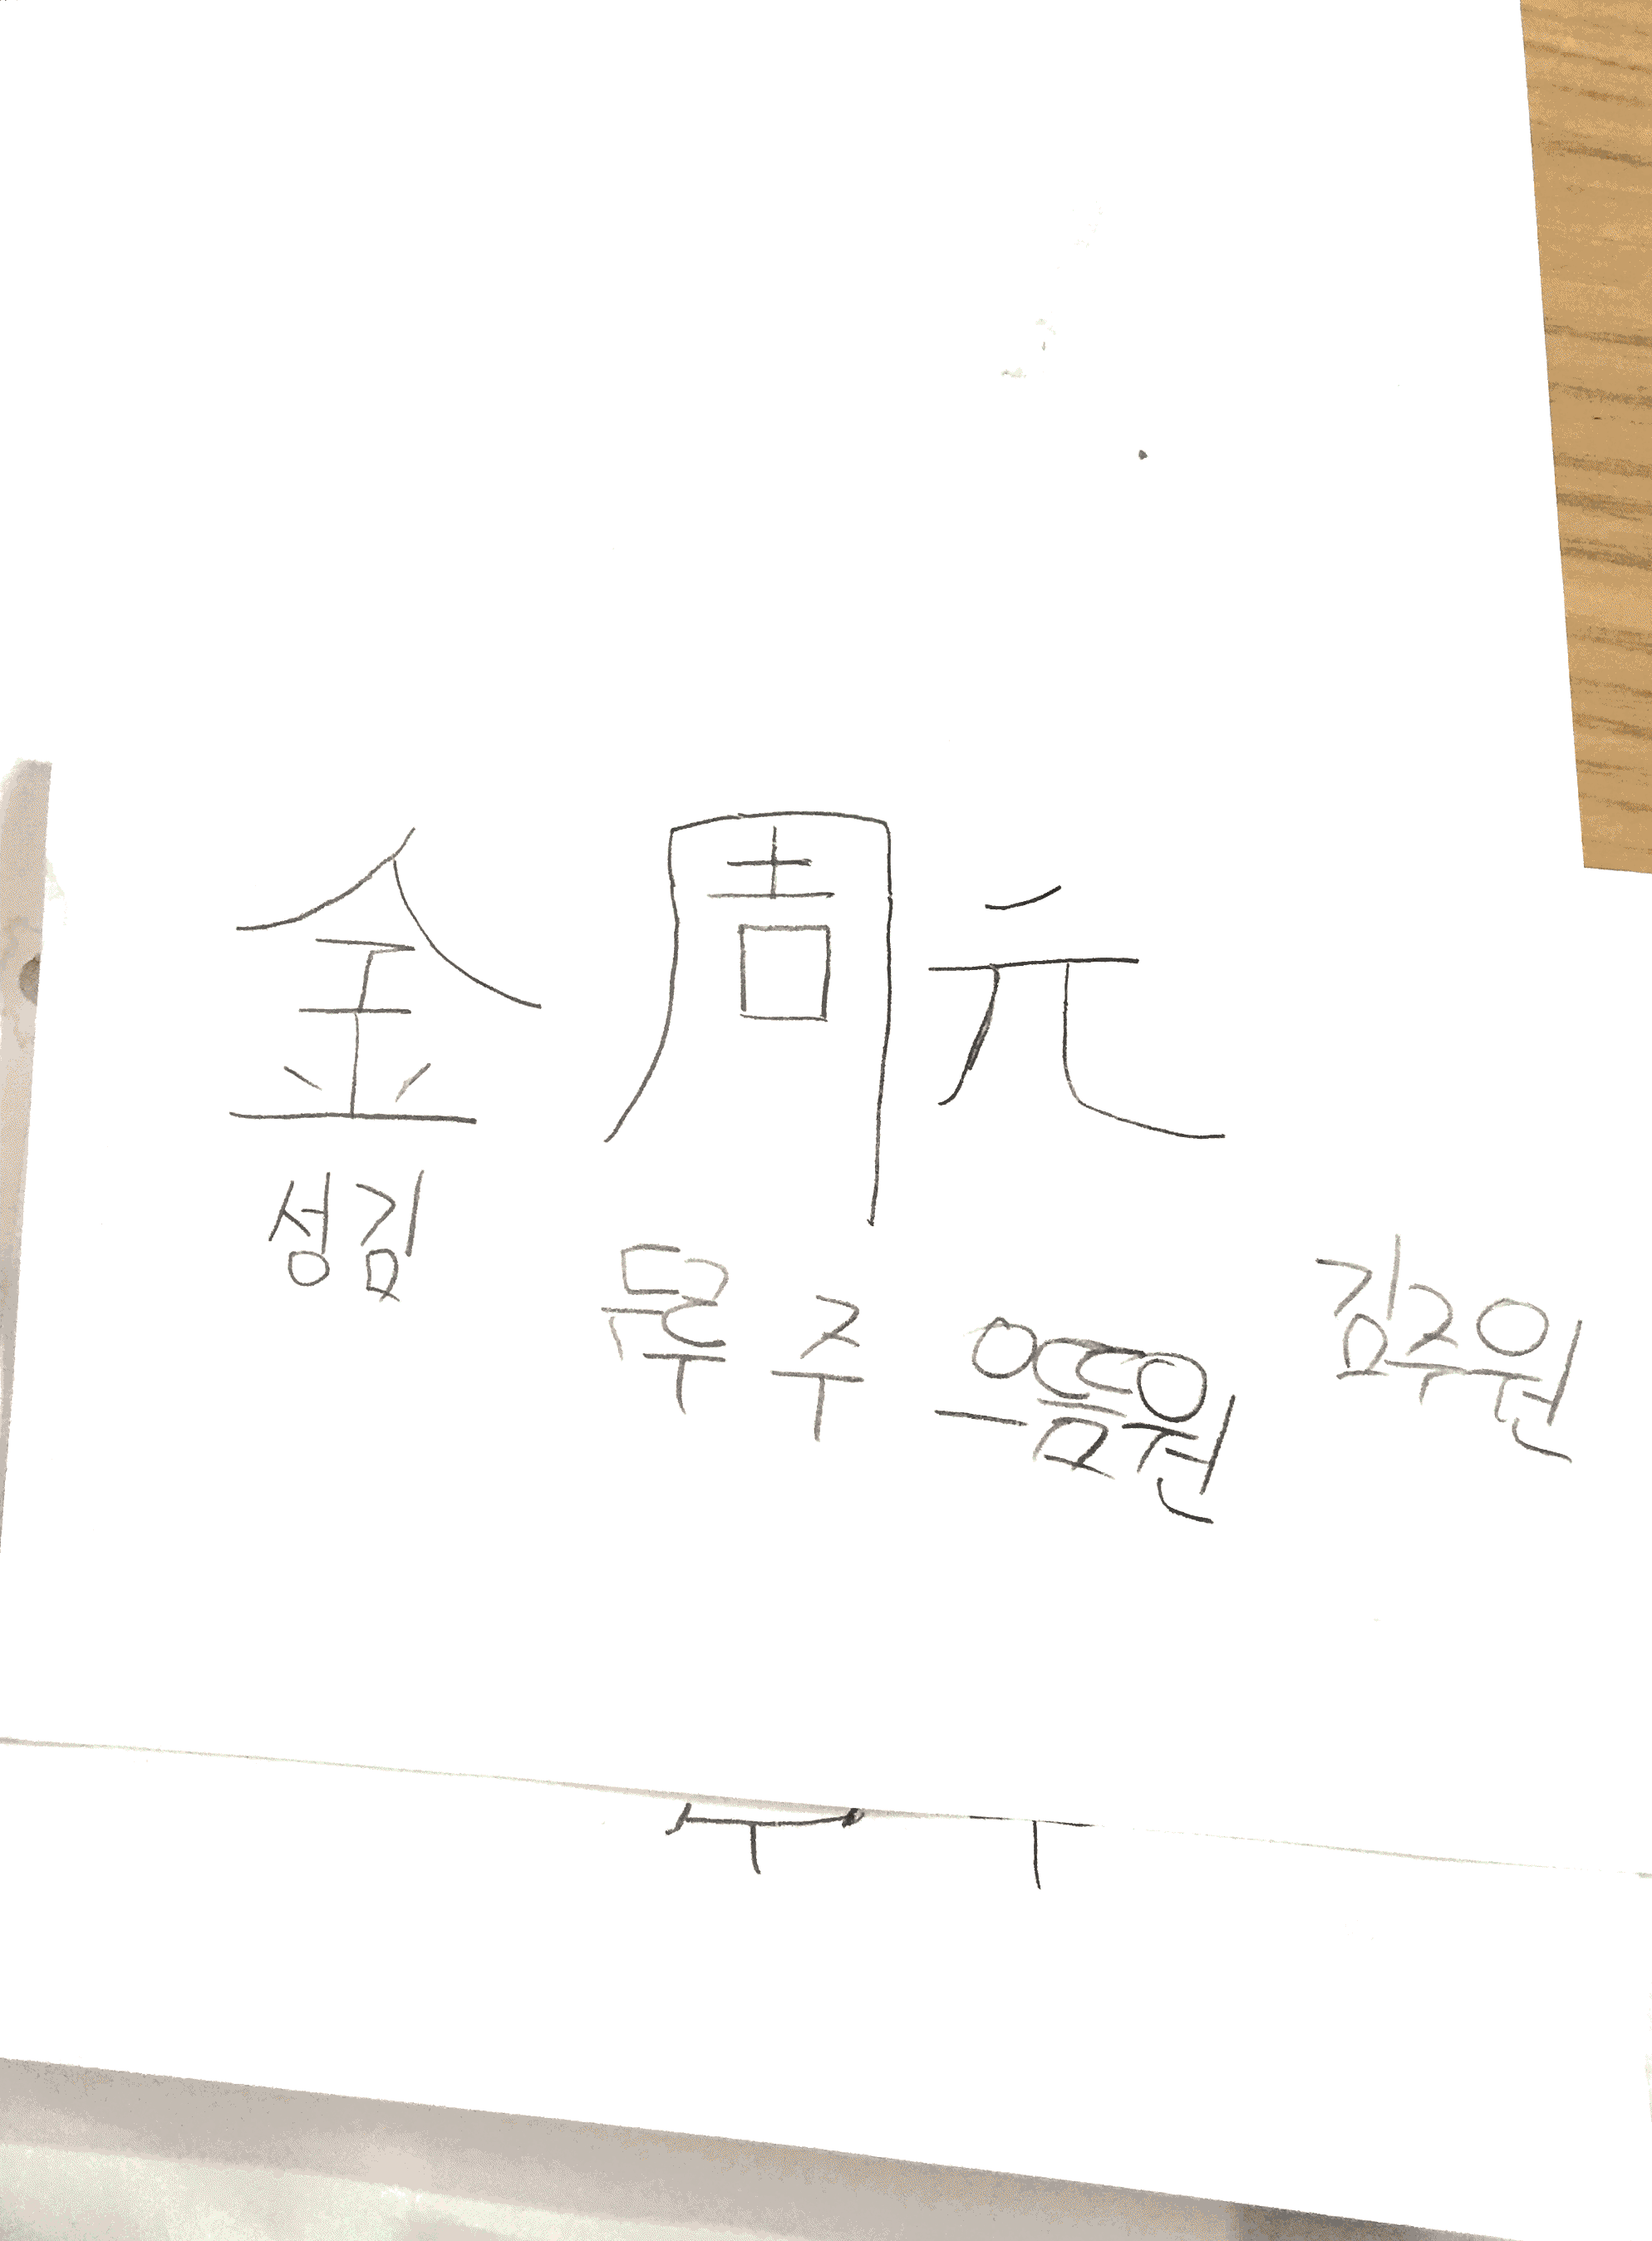 金周元
성김 두루주 으뜸원 김주원